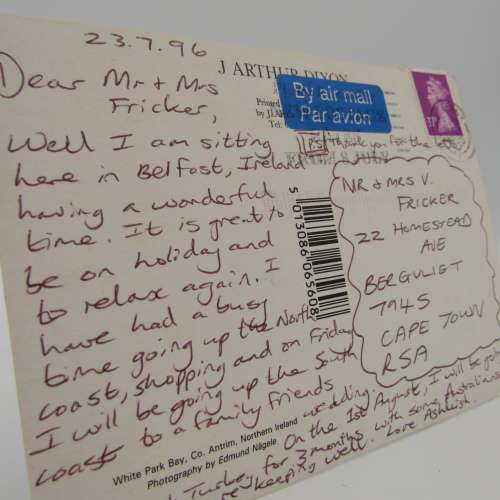 23.7.96
Dear Mr & Mrs
Fricker,
Well I am sitting
here in Belfast, Ireland
having a wonderful
time. It is great to
be on holiday and
to relax again. I
have had a busy
time going up the North
coast, shopping and on Friday
I will be going up the South
coast to a family friends
wedding.
On the 1st August, I will be
Turkey for 3 months with some Australians
keeping well. Love
J ARTHUR DIXON
By air mail
Par avion
P.S. Thank you for the
MR & MRS V.
FRICKER
22 HOMESTEAD
AVE
BERGVLIET
7945
CAPE TOWN
RSA
5 013086 065608
White Park Bay, Co. Antrim, Northern Ireland
Photography by Edmund Nägele